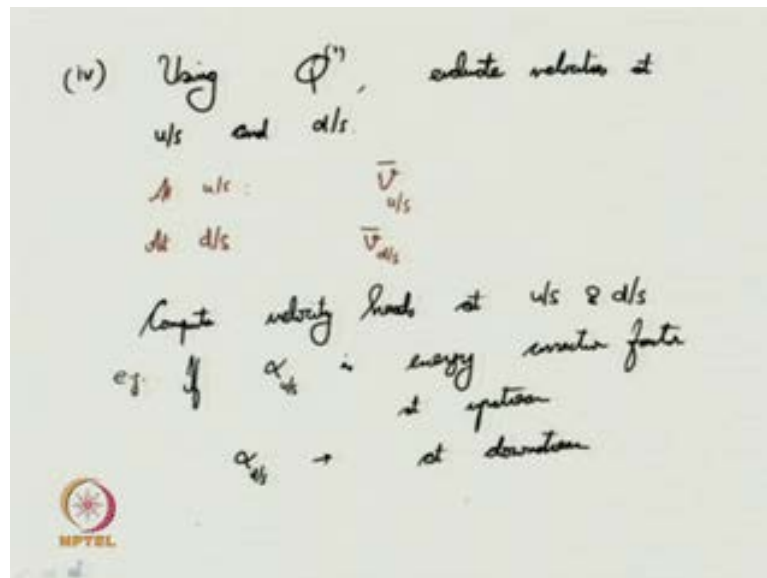 (iv) Using Q⁽¹⁾, evaluate velocities at
u/s and d/s.
At u/s : V̄u/s
At d/s V̄d/s
Compute velocity heads at u/s & d/s
eg. If αu/s is energy correction factor
at upstream
αd/s → at downstream
NPTEL